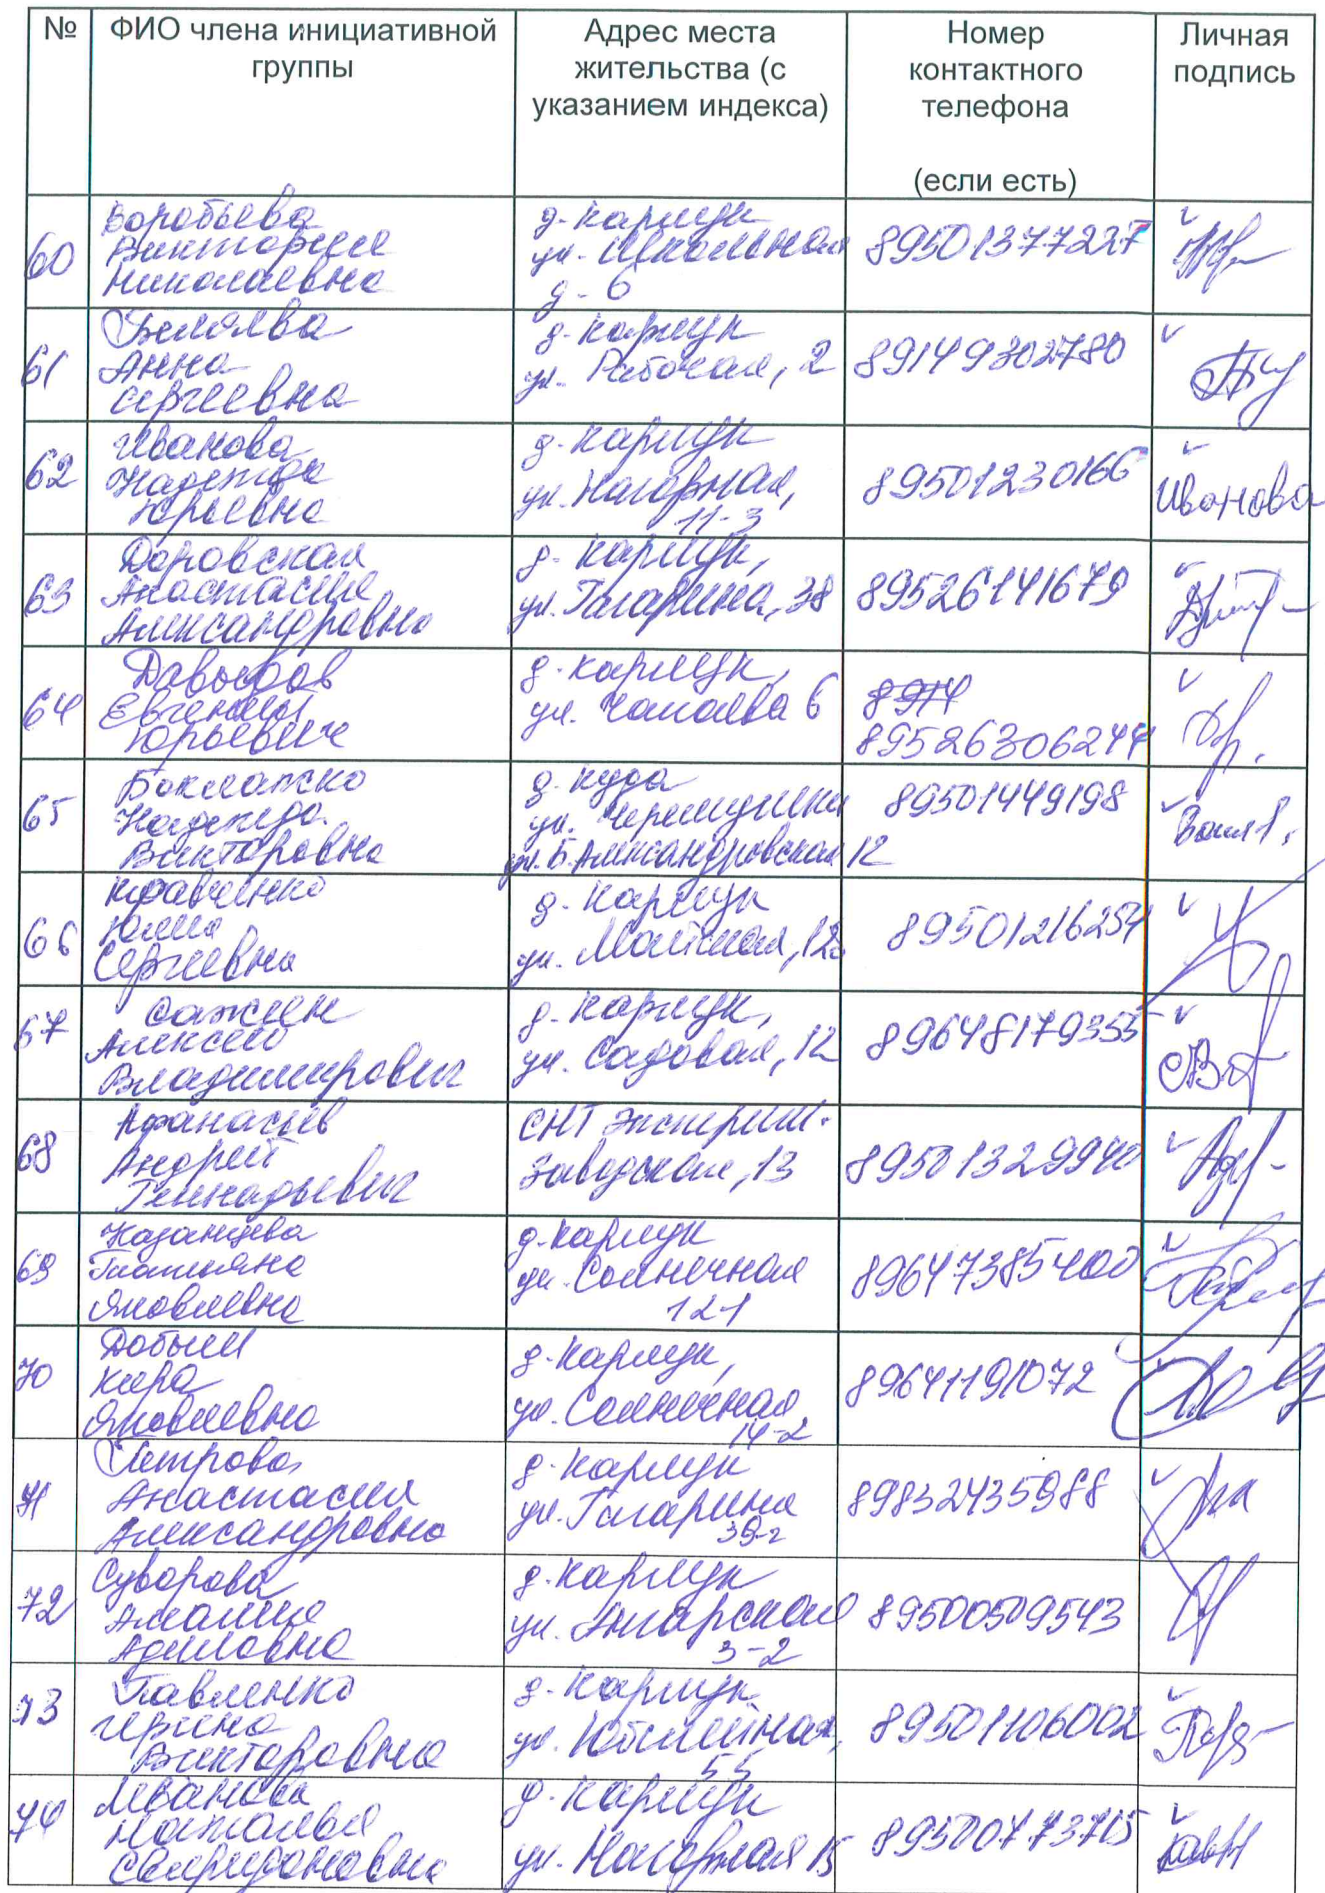 № ФИО члена инициативной группы Адрес места жительства (с указанием индекса) Номер контактного телефона (если есть) Личная подпись
60 Воробьева Виктория Николаевна д. Карлук ул. Школьная д. 6 89501377227
61 Беляева Анна Сергеевна д. Карлук ул. Рабочая, 2 89149302780
62 Иванова Надежда Юрьевна д. Карлук ул. Нагорная, 11-3 89501230166 Иванова
63 Доровская Анастасия Александровна д. Карлук, ул. Гагарина, 38 89526141679
64 Давыдов Евгений Юрьевич д. Карлук, ул. Чапаева 6 8914 89526306244
65 Надежда Викторовна д. Куда ул. Черемушки ул. Б. Александровская 12 89501449198
66 Кравченко Юлия Сергеевна д. Карлук ул. Майская, 12 89501216254
67 Сажин Алексей Владимирович д. Карлук, ул. Садовая, 12 89648179355
68 Афанасьев Андрей Геннадьевич СНТ Эксперим. Заводская, 13 89501329940
69 Казанцева Татьяна Яковлевна д. Карлук ул. Солнечная 12-1 89647385400
70 Кира Яковлевна д. Карлук, ул. Солнечная 14-2 89641191072
71 Петрова Анастасия Александровна д. Карлук ул. Гагарина 39-2 89832435988
72 Суворова Амалия Адиловна д. Карлук ул. Ангарская 3-2 89500509543
73 Павленко Ирина Викторовна д. Карлук ул. Юбилейная, 55 89501106002
74 Иванова Наталья Спиридоновна д. Карлук ул. Нагорная 15 89500773715